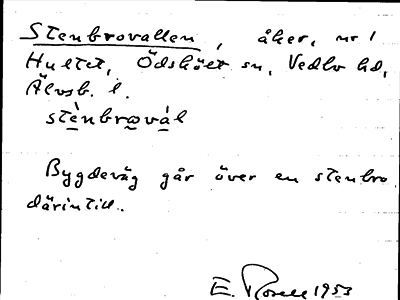 Stenbrovallen, åker, nr 1
Hultet, Ödsköët sn, Vedbo hd,
Älvsb. l.
stè̱nbro̱vá̱l
Bygdeväg går över en stenbro
därintill.
E. 1953